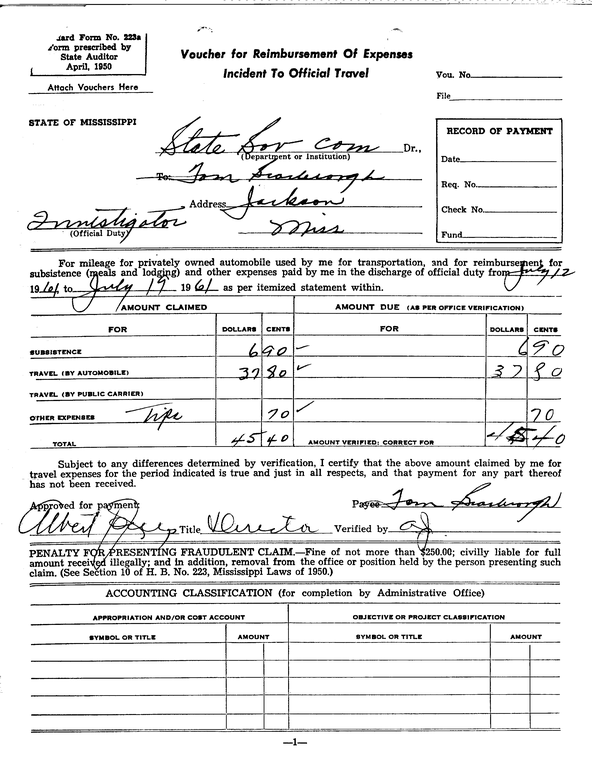 dard Form No. 223a
Form prescribed by
State Auditor
April, 1950
Attach Vouchers Here
Voucher for Reimbursement Of Expenses
Incident To Official Travel
Vou. No.
File
STATE OF MISSISSIPPI
State Sov Com Dr.,
(Department or Institution)
To: Tom Scarbrough
Address Jackson
Miss
Investigator
(Official Duty)
RECORD OF PAYMENT
Date
Req. No.
Check No.
Fund
For mileage for privately owned automobile used by me for transportation, and for reimbursement for
subsistence (meals and lodging) and other expenses paid by me in the discharge of official duty from July 12
1961 to July 19 1961 as per itemized statement within.
AMOUNT CLAIMED AMOUNT DUE (AS PER OFFICE VERIFICATION)
FOR DOLLARS CENTS FOR DOLLARS CENTS
SUBSISTENCE 6 90 6 90
TRAVEL (BY AUTOMOBILE) 37 80 37 80
TRAVEL (BY PUBLIC CARRIER)
OTHER EXPENSES Tips 70 70
TOTAL 45 40 AMOUNT VERIFIED: CORRECT FOR 45 40
Subject to any differences determined by verification, I certify that the above amount claimed by me for
travel expenses for the period indicated is true and just in all respects, and that payment for any part thereof
has not been received.
Approved for payment: Payee Tom Scarbrough
Albert Title Director Verified by
PENALTY FOR PRESENTING FRAUDULENT CLAIM.—Fine of not more than $250.00; civilly liable for full
amount received illegally; and in addition, removal from the office or position held by the person presenting such
claim. (See Section 10 of H. B. No. 223, Mississippi Laws of 1950.)
ACCOUNTING CLASSIFICATION (for completion by Administrative Office)
APPROPRIATION AND/OR COST ACCOUNT OBJECTIVE OR PROJECT CLASSIFICATION
SYMBOL OR TITLE AMOUNT SYMBOL OR TITLE AMOUNT
—1—